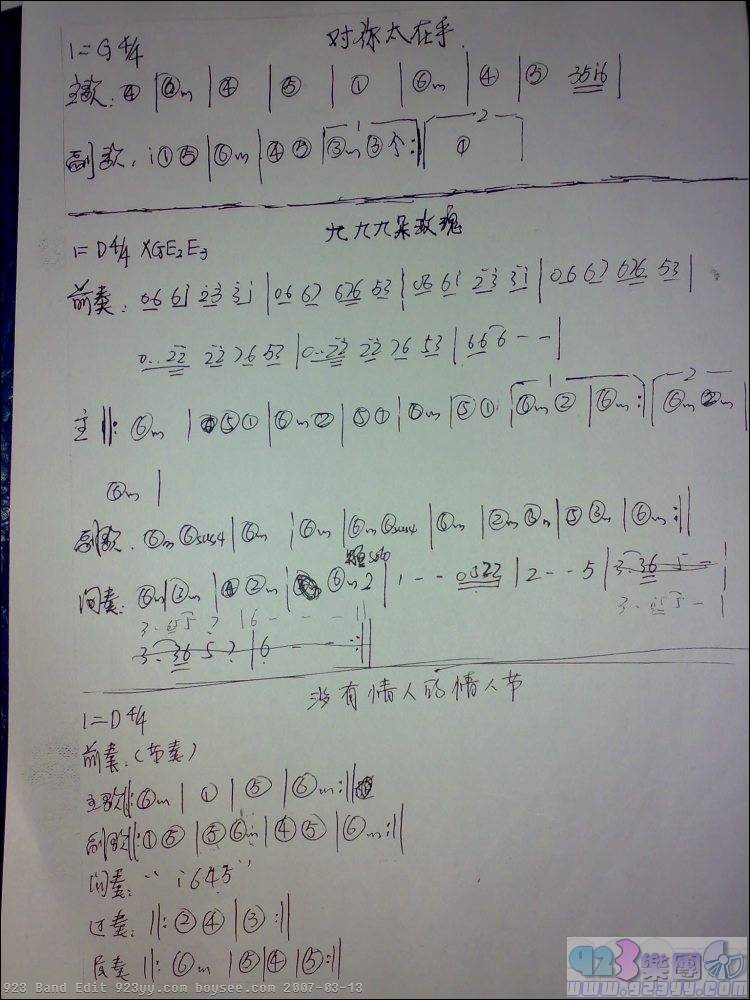 对你太在乎
1=G 4/4
主歌: ④ |⑥m |④ |⑤ |① |⑥m |④ |⑤ 35i6 |
副歌. i①⑤ |⑥m |④⑤ |1 ③m③个:| |2 ① |
九九九朵玫瑰
1=D 4/4 XGE2E3
前奏: 06 6i 2̇3̇ 3̇i |06 67 676 53 |06 6i 2̇3̇ 3̇i |06 67 676 53 |
0..2̇2̇ 2̇2̇ 76 53 |0..2̇2̇ 2̇2̇ 76 53 |66 6 - - |
主 ‖: ⑥m |④⑤① |⑥m② |⑤① |⑥m |⑤① |1 ⑥m② |⑥m:| |2 ⑥m②m |
⑥m |
副歌. ⑥m⑥sus4 |⑥m |⑥m |⑥m⑥sus4 |⑥m |②m③m |⑤③m |⑥m:‖
间奏: ⑥m |③m |④②m | ⑥m2 |1 - - 0322 |2 - - 5 |3. 36 5 - |
solo
3. 65 5 - |
3. 65 5 7 |6 - - - ‖
3. 36 5 7 |6 - - - :‖
没有情人的情人节
1=D 4/4
前奏: (节奏)
主歌‖:⑥m |① |⑤ |⑥m:‖
副歌‖:①⑤ |⑤⑥m |④⑤ |⑥m:‖
间奏: “i645”
过奏: ‖:②④ |③:‖
尾奏 ‖:⑥m |⑤ |④ |⑤:‖
923樂團
www.923yy.com
923 Band Edit 923yy.com boysee.com 2007-03-13